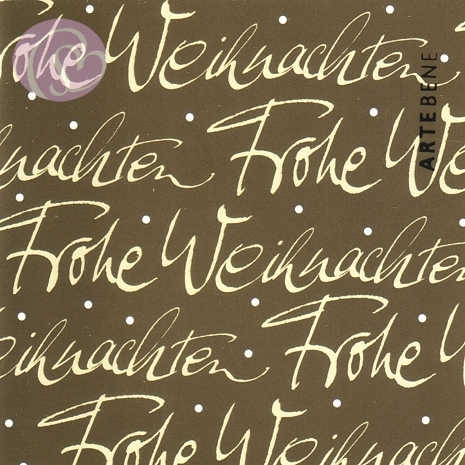 Frohe Weihnachten
Weihnachten Frohe We
Frohe Weihnachten
Weihnachten Frohe
Frohe Weihnach
ARTEBENE